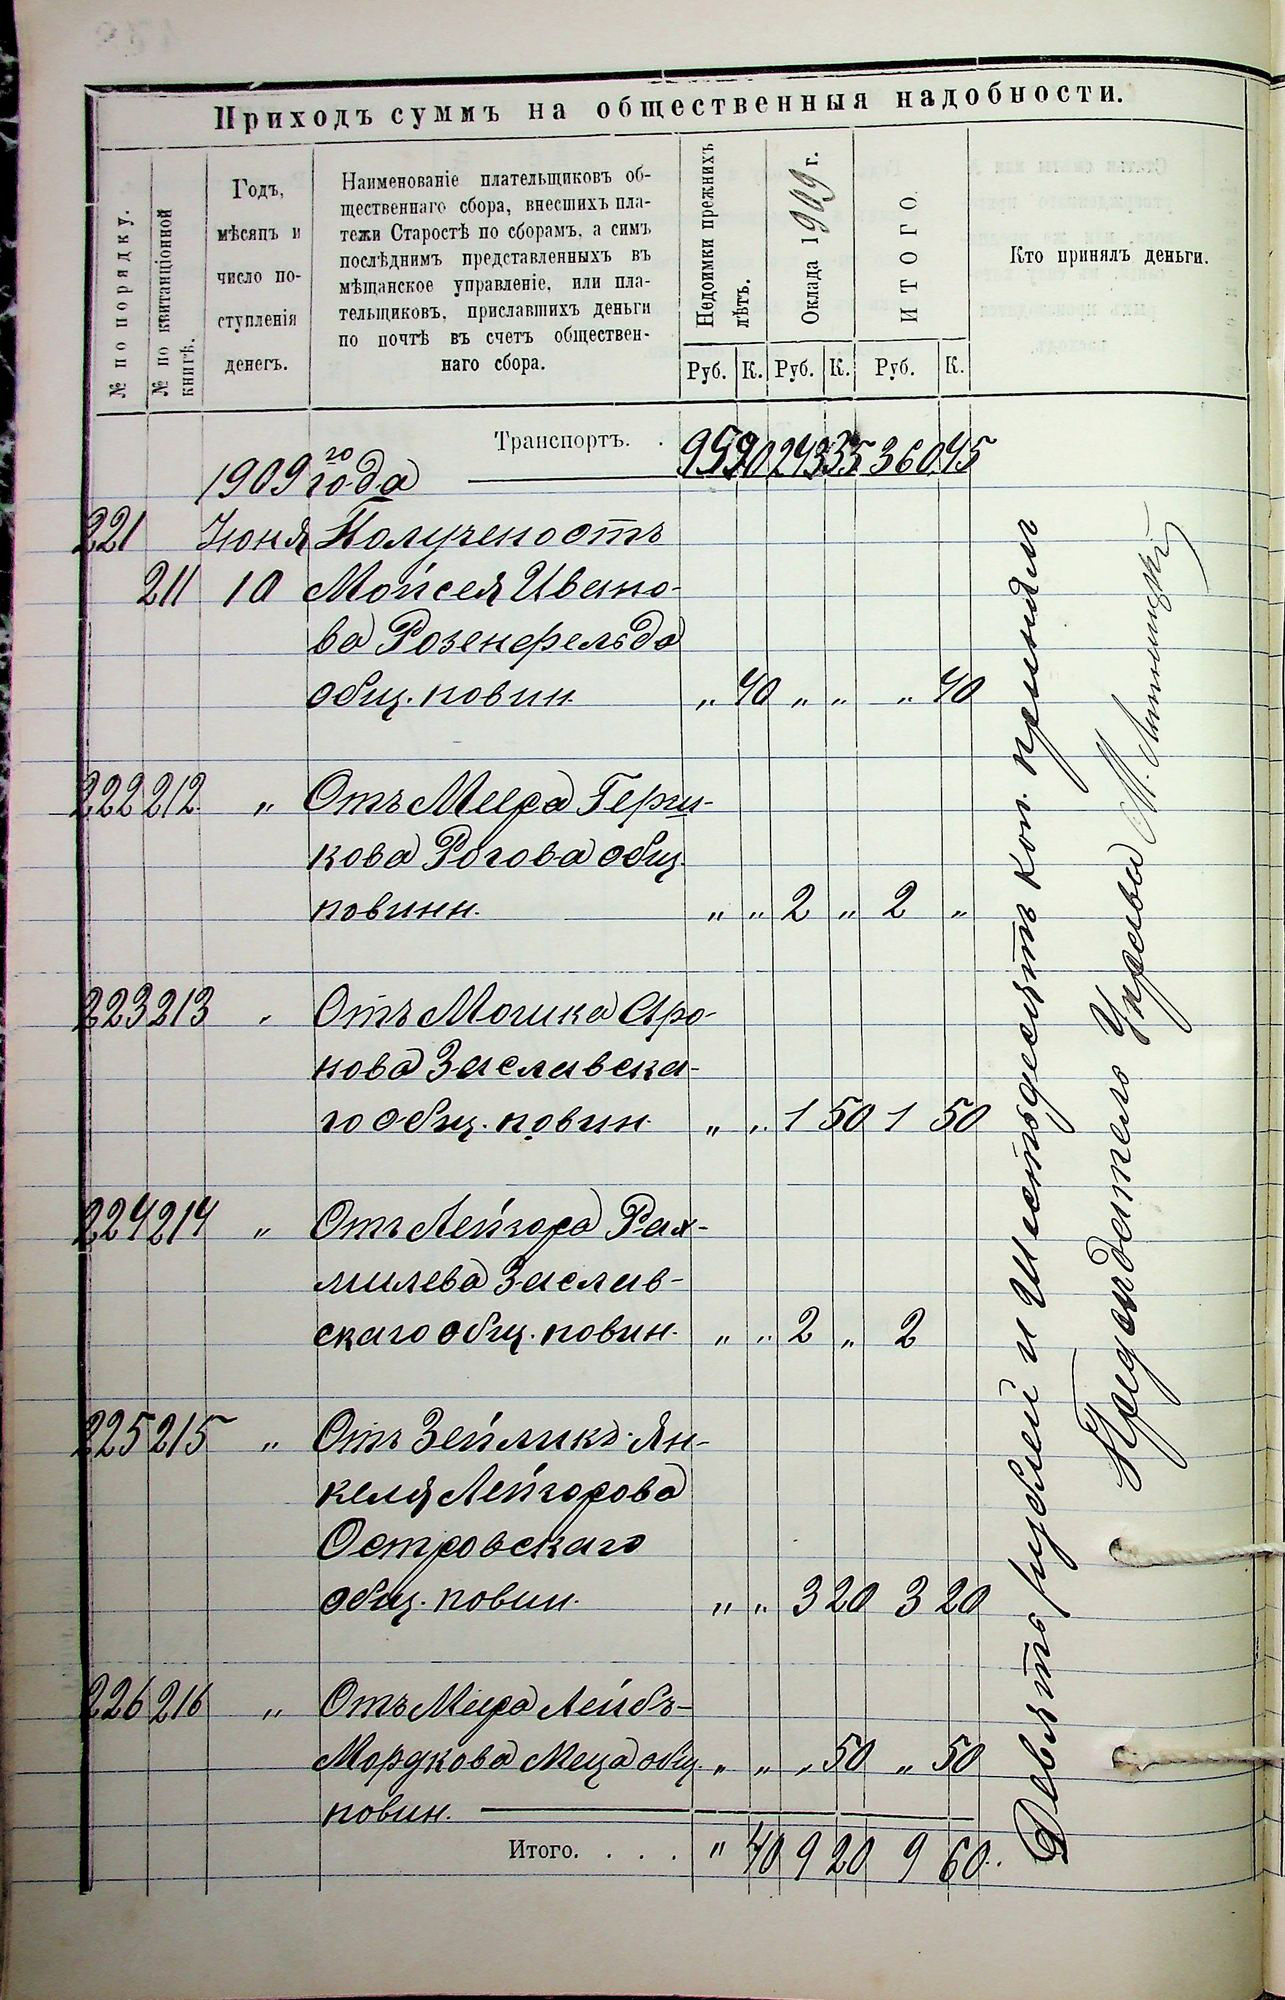 Приходъ суммъ на общественныя надобности.
№ по порядку.
№ по квитанціонной книгѣ.
Годъ,
мѣсяцъ и
число по-
ступленія
денегъ.
Наименованіе плательщиковъ об-
щественнаго сбора, внесшихъ пла-
тежи Старостѣ по сборамъ, а симъ
послѣднимъ представленныхъ въ
мѣщанское управленіе, или пла-
тельщиковъ, приславшихъ деньги
по почтѣ въ счетъ обществен-
наго сбора.
Недоимки прежнихъ лѣтъ.
Оклада 1909 г.
ИТОГО
Кто принялъ деньги.
Руб. К. Руб. К. Руб. К.
Транспортъ. .
243 35 360 45
1909 го года
221 Іюня Получено отъ
211 10 Мойсея Ивано-
ва Розенфельда
общ. повин. „ 40 „ „ „ 40
222 212 „ Отъ Меера Герш-
кова Рогова общ.
повинн. „ „ 2 „ 2 „
223 213 „ Отъ Мошка Аро-
нова Заславска-
го общ. повин. „ „ 1 50 1 50
224 214 „ Отъ Лейзора Рах-
милева Заслав-
скаго общ. повин. „ „ 2 „ 2
225 215 „ Отъ Зейликъ-Ян-
келя Лейзорова
Островскаго
общ. повин. „ „ 3 20 3 20
226 216 „ Отъ Меера Лейбъ-
Мордкова Меца общ. „ „ „ 50 „ 50
повин.
Итого. . . . „ 40 9 20 9 60.
Девять рублей и Шестьдесятъ коп. принялъ
Управы М.